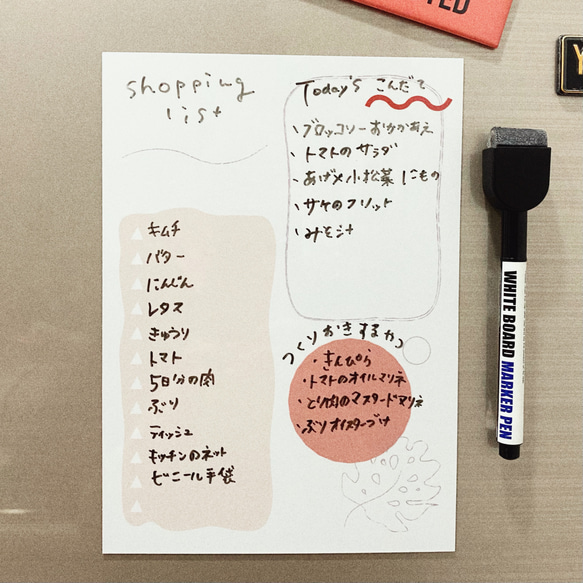 TED
Y
shopping
list
キムチ
バター
にんじん
レタス
きゅうり
トマト
5日分の肉
ぶり
ティッシュ
キッチンのネット
ビニール手袋
Today's こんだて
ブロッコリーおかかあえ
トマトのサラダ
あげ×小松菜 にもの
サケのフリット
みそ汁
つくりおきするやつ
・きんぴら
・トマトのオイルマリネ
・とり肉のマスタードマリネ
・ぶりオイスターづけ
WHITE BOARD MARKER PEN